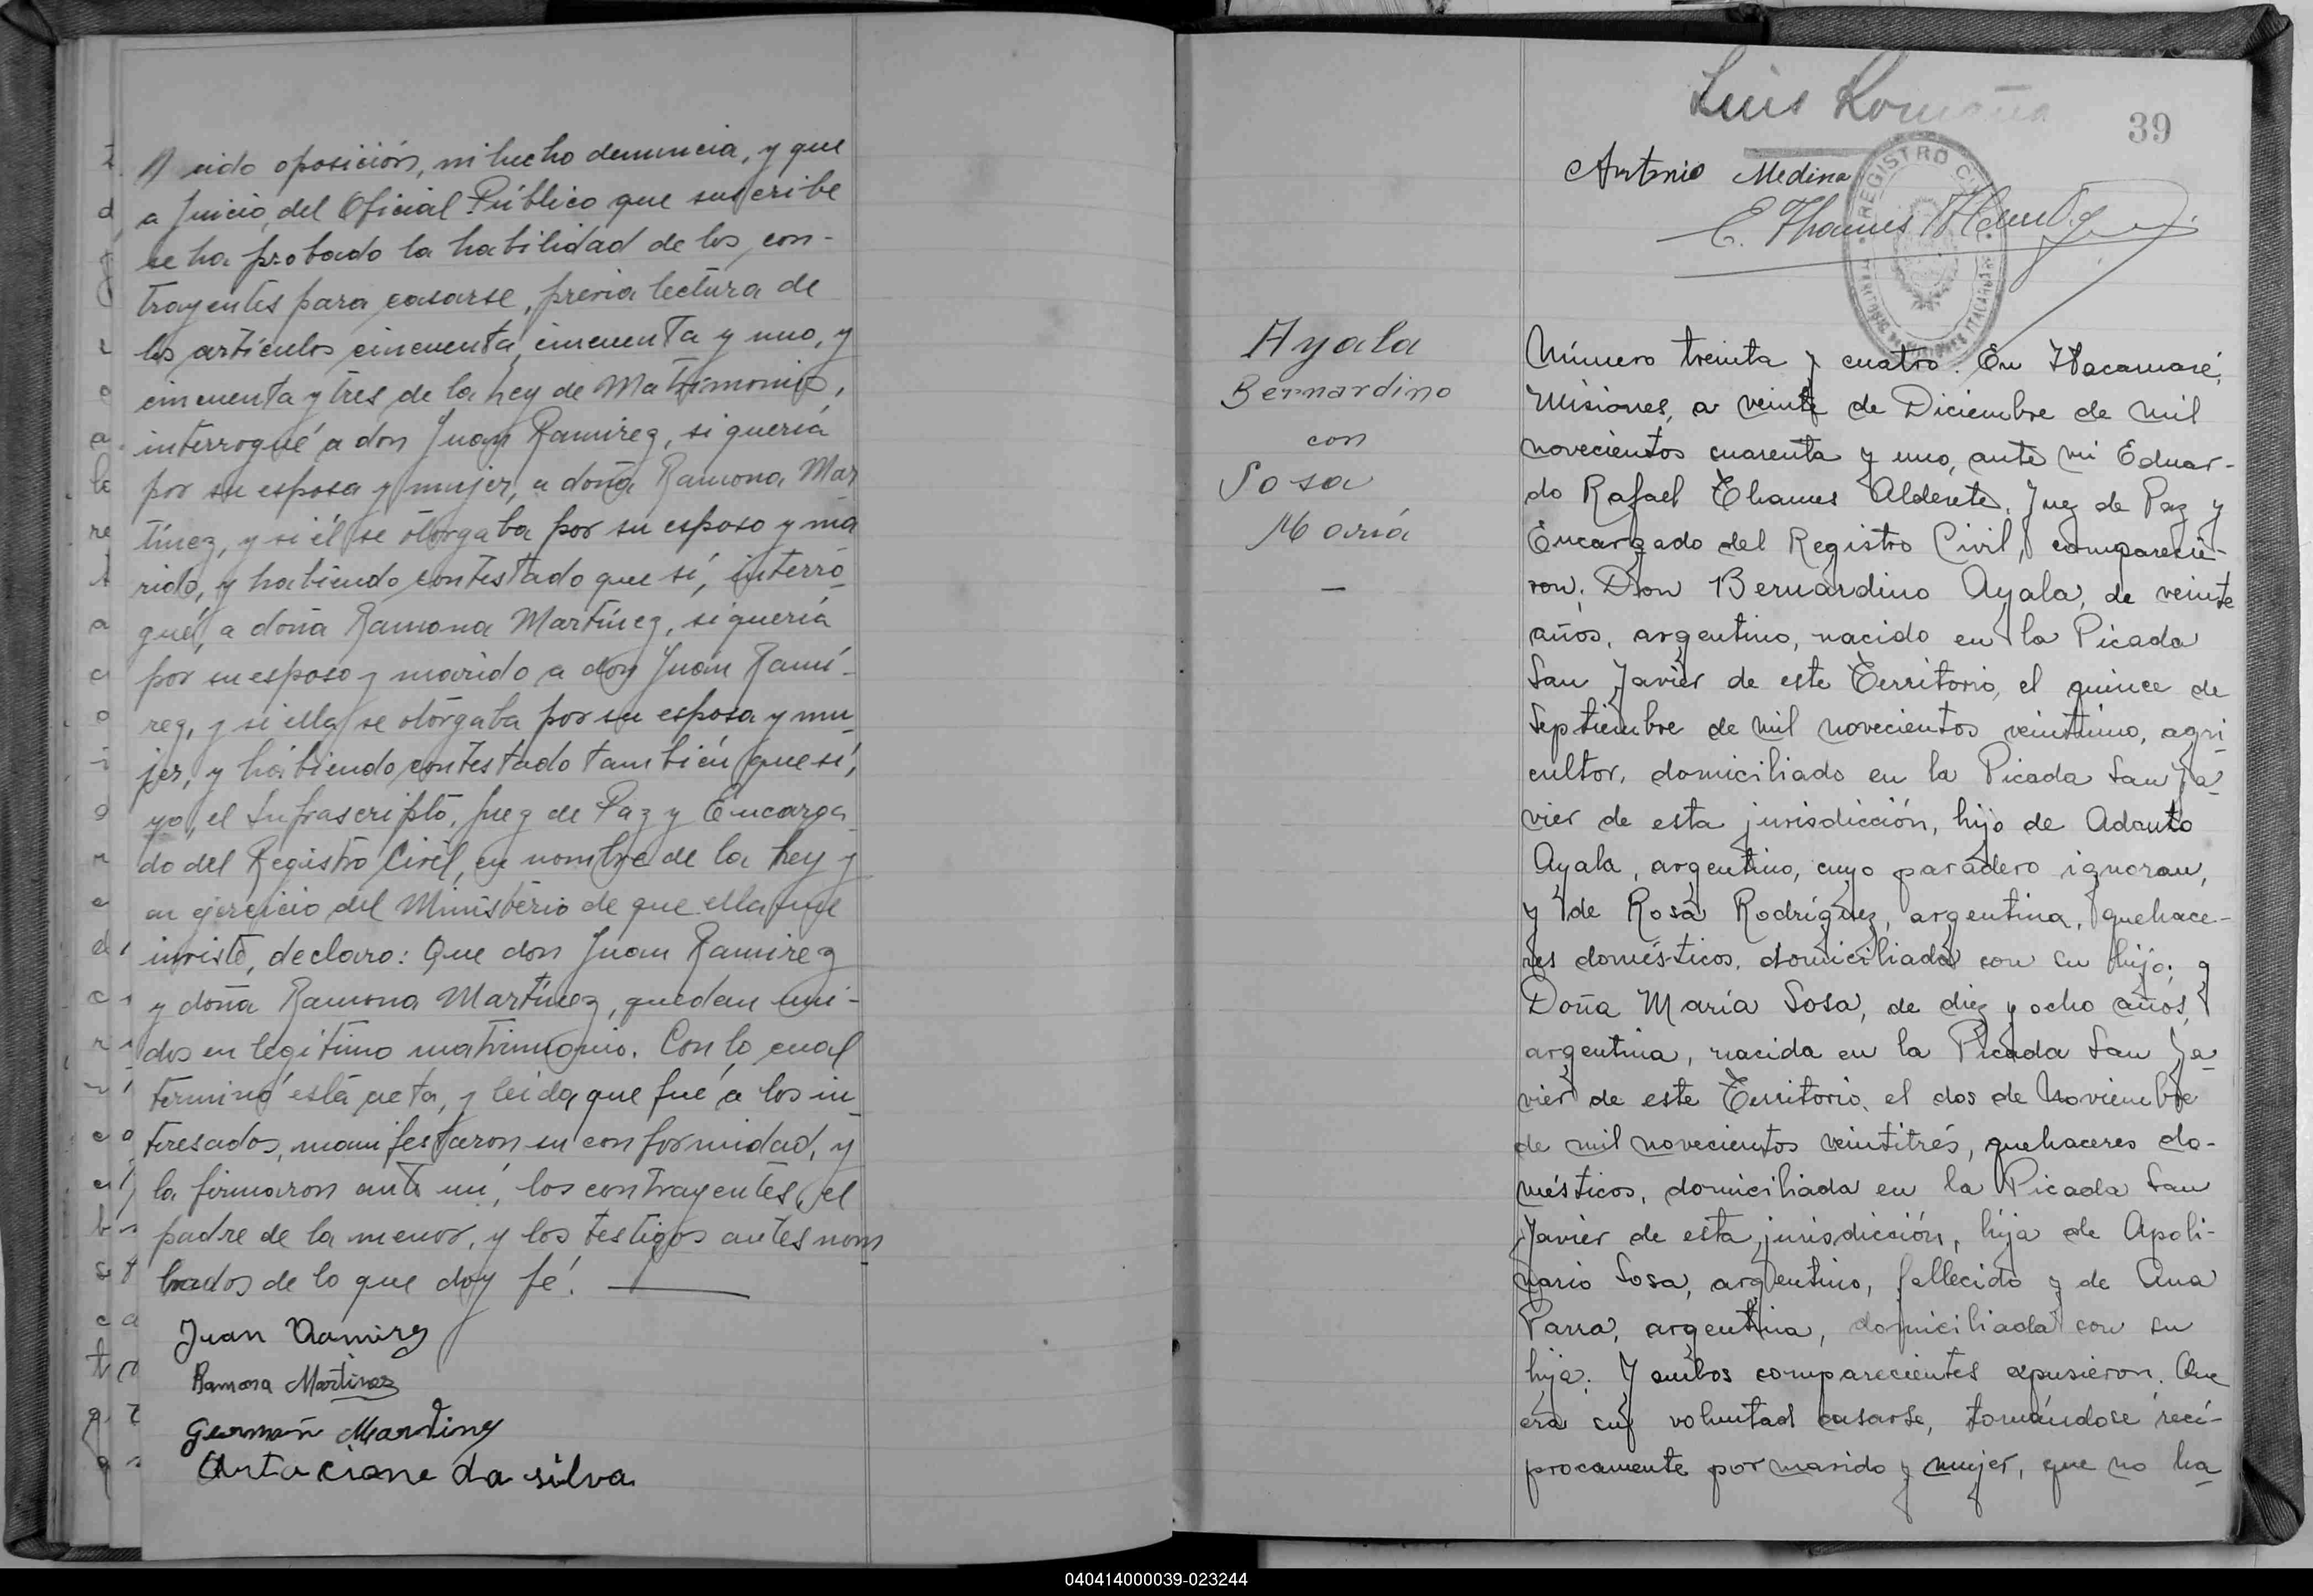 cido oposición, ni hecho denuncia, y que
a juicio, del Oficial Público que suscribe
se ha probado la habilidad de los con-
trayentes para casarse, previa lectura de
los artículos cincuenta, cincuenta y uno, y
cincuenta y tres de la Ley de Matrimonio,
interrogué a don Juan Ramirez, si quería
por su esposa y mujer, a doña Ramona Mar
tínez, y si él se otorgaba por su esposo y ma
rido, y habiendo contestado que sí, interro-
gué, a doña Ramona Martínez, si quería
por su esposo y marido a don Juan Ramí-
rez, y si ella se otorgaba por su esposa y mu
jer, y habiendo contestado también que sí,
yo, el Infrascripto, Juez de Paz y Encarga
do del Registro Civil, en nombre de la Ley y
en ejercicio del Ministerio de que ella me
inviste, declaro: Que don Juan Ramirez
y doña Ramona Martínez, quedan uni-
dos en legitimo matrimonio. Con lo cual
terminó esta acta, y leida que fué a los in
teresados, manifestaron su conformidad, y
la firmaron ante mí, los contrayentes, el
padre de la menor, y los testigos antes nom
brados de lo que doy fé.
Juan Ramirez
Ramona Martinez
Germañ Martinez
da silva
Luis Romaña
39
Antonio Medina
E. Thames Alderete
REGISTRO CIVIL
Ayala
Bernardino
con
Sosa
María
Número treinta y cuatro. En Itacaruaré,
Misiones, a veinte de Diciembre de mil
novecientos cuarenta y uno, ante mi Eduar-
do Rafael Thames Alderete, Juez de Paz y
Encargado del Registro Civil, comparecie-
ron; Don Bernardino Ayala, de veinte
años, argentino, nacido en la Picada
San Javier de este Territorio, el quince de
Septiembre de mil novecientos veintiuno, agri
cultor, domiciliado en la Picada San Ja-
vier de esta jurisdicción, hijo de Adauto
Ayala, argentino, cuyo paradero ignoran,
y de Rosa Rodríguez, argentina, quehace-
res domésticos, domiciliada con su hijo; y
Doña María Sosa, de diez y ocho años,
argentina, nacida en la Picada San Ja-
vier de este Territorio, el dos de Noviembre
de mil novecientos veintitrés, quehaceres do-
mésticos, domiciliada en la Picada San
Javier de esta jurisdicción, hija de Apoli-
nario Sosa, argentino, fallecido y de Ana
Parra, argentina, domiciliada con su
hija. Y ambos comparecientes expusieron. Que
era su voluntad casarse, tomándose recí-
procamente por marido y mujer, que no ha-
040414000039-023244